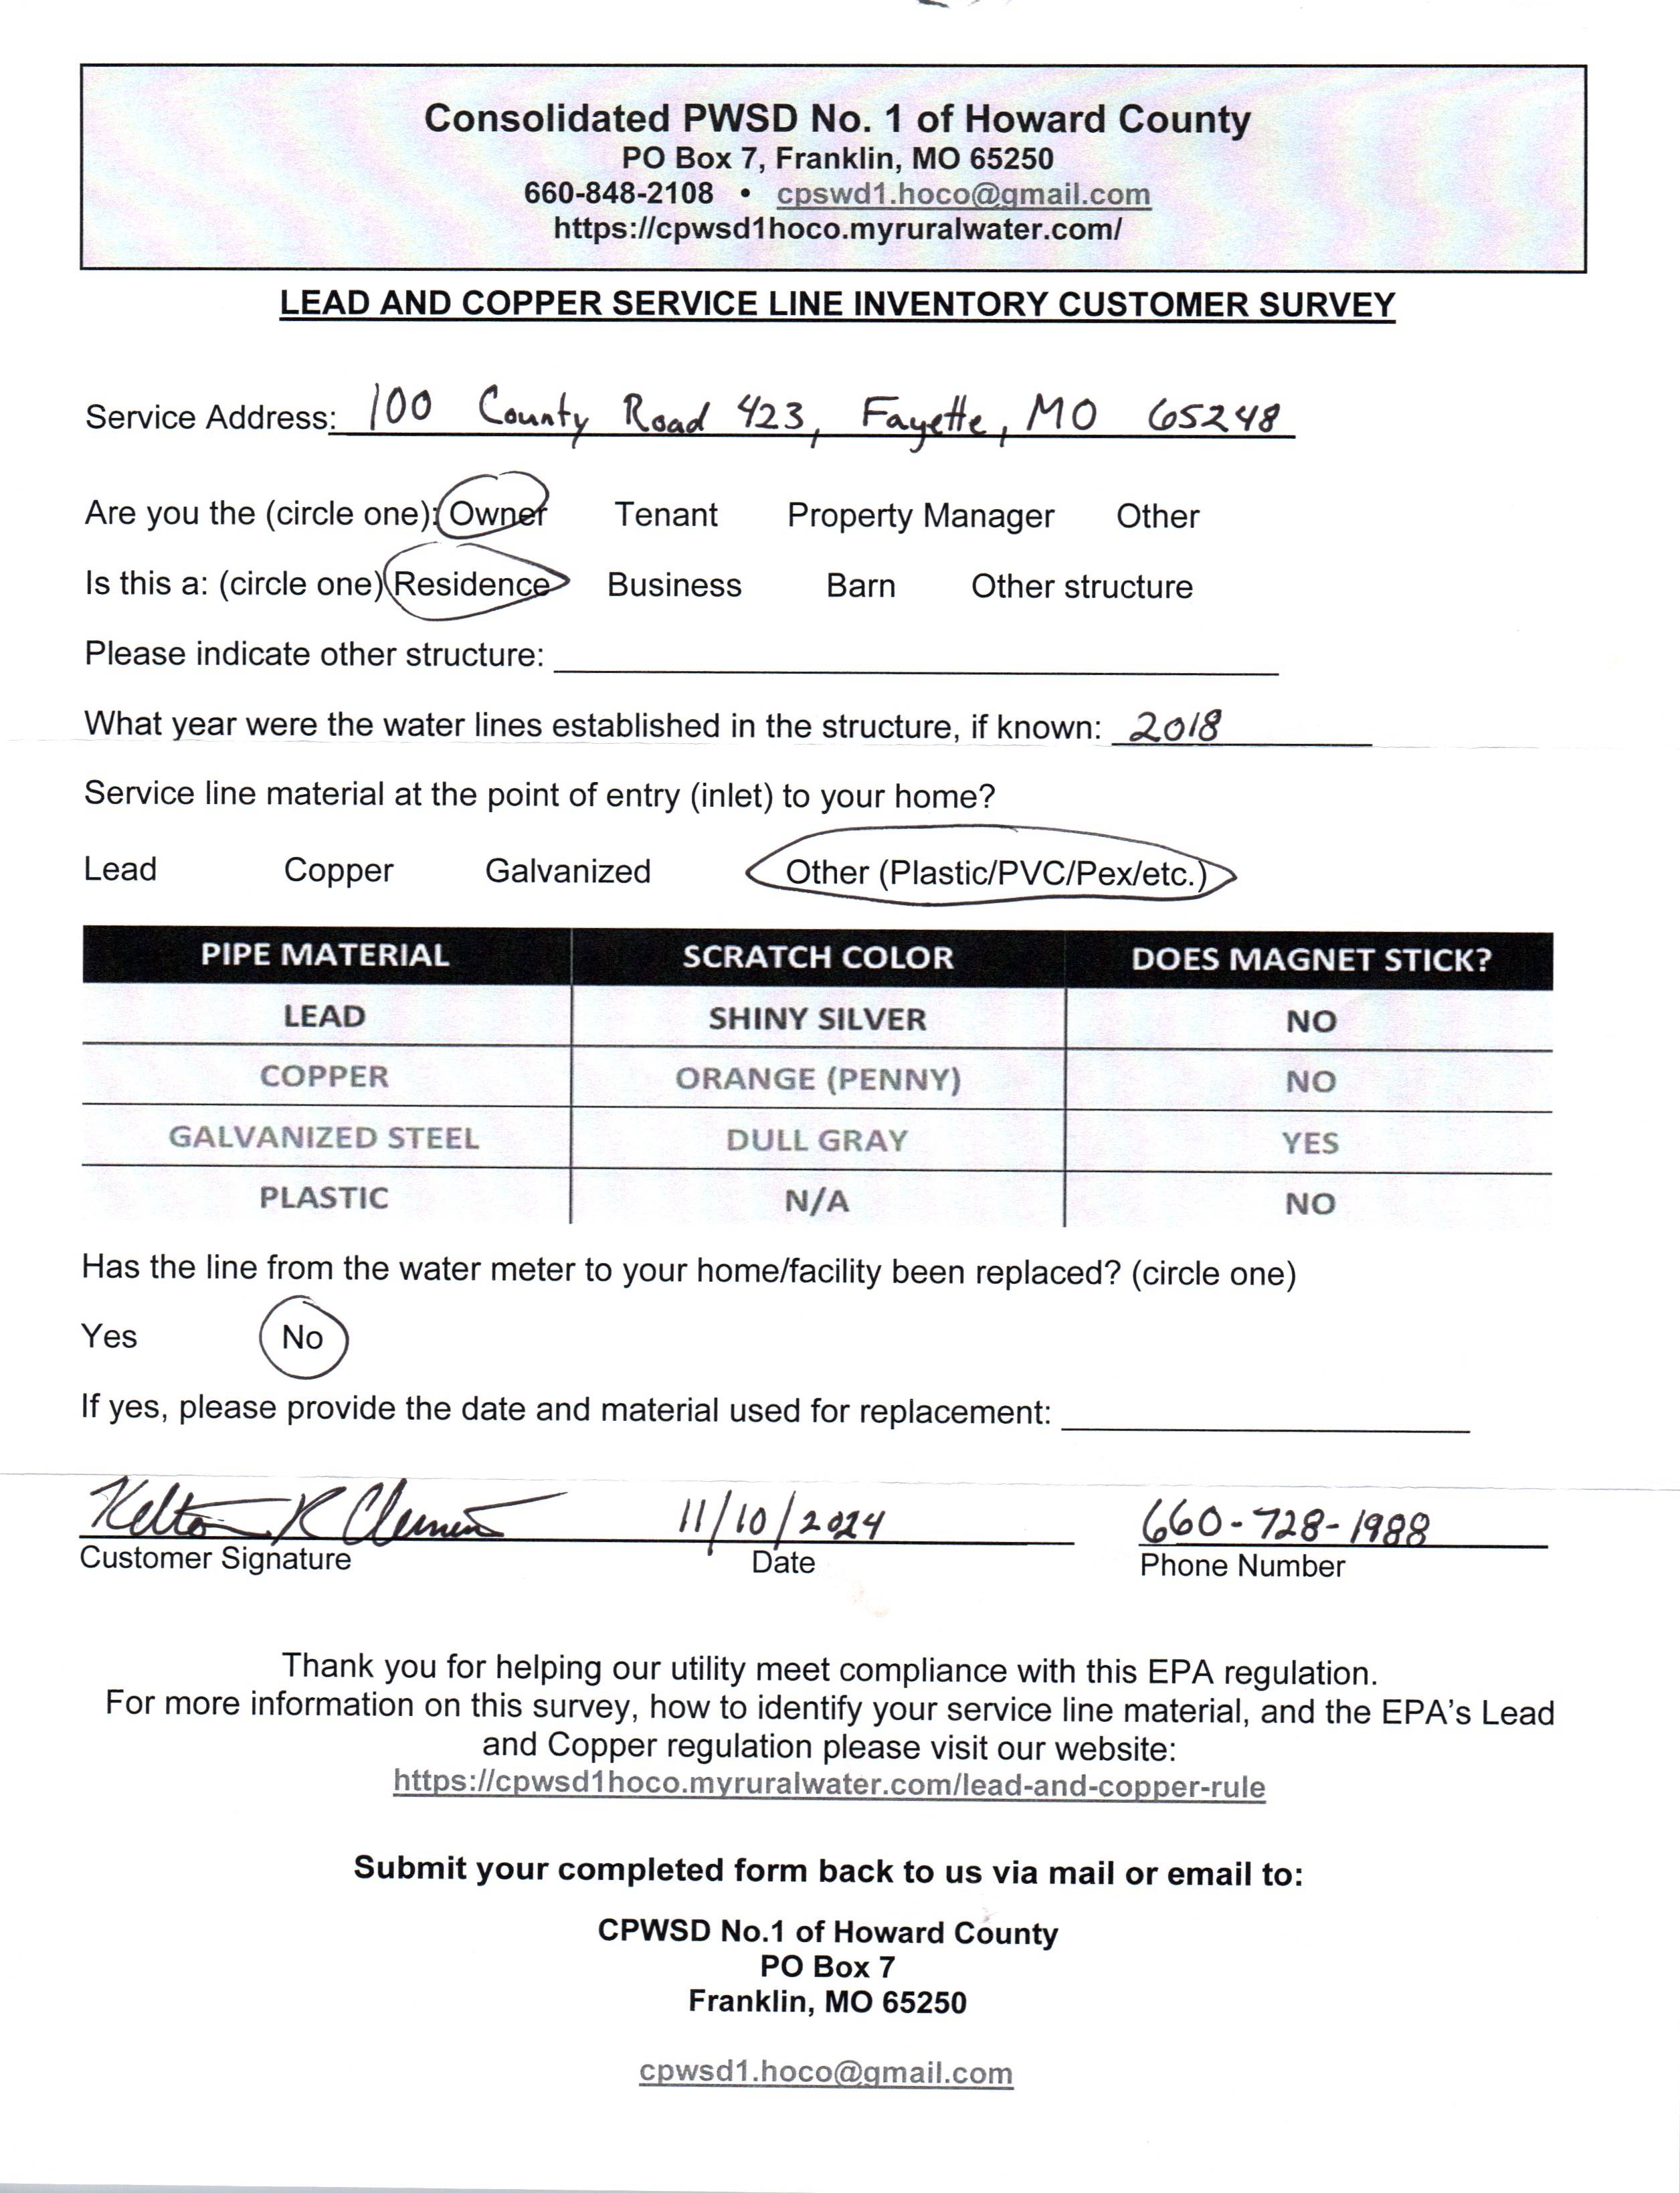 Consolidated PWSD No. 1 of Howard County
PO Box 7, Franklin, MO 65250
660-848-2108 • cpswd1.hoco@gmail.com
https://cpwsd1hoco.myruralwater.com/
LEAD AND COPPER SERVICE LINE INVENTORY CUSTOMER SURVEY
Service Address: 100 County Road 423, Fayette, MO 65248
Are you the (circle one): Owner Tenant Property Manager Other
Is this a: (circle one) Residence Business Barn Other structure
Please indicate other structure:
What year were the water lines established in the structure, if known: 2018
Service line material at the point of entry (inlet) to your home?
Lead Copper Galvanized Other (Plastic/PVC/Pex/etc.)
PIPE MATERIAL SCRATCH COLOR DOES MAGNET STICK?
LEAD SHINY SILVER NO
COPPER ORANGE (PENNY) NO
GALVANIZED STEEL DULL GRAY YES
PLASTIC N/A NO
Has the line from the water meter to your home/facility been replaced? (circle one)
Yes No
If yes, please provide the date and material used for replacement:
Kelton R 11/10/2024 660-728-1988
Customer Signature Date Phone Number
Thank you for helping our utility meet compliance with this EPA regulation.
For more information on this survey, how to identify your service line material, and the EPA's Lead
and Copper regulation please visit our website:
https://cpwsd1hoco.myruralwater.com/lead-and-copper-rule
Submit your completed form back to us via mail or email to:
CPWSD No.1 of Howard County
PO Box 7
Franklin, MO 65250
cpwsd1.hoco@gmail.com